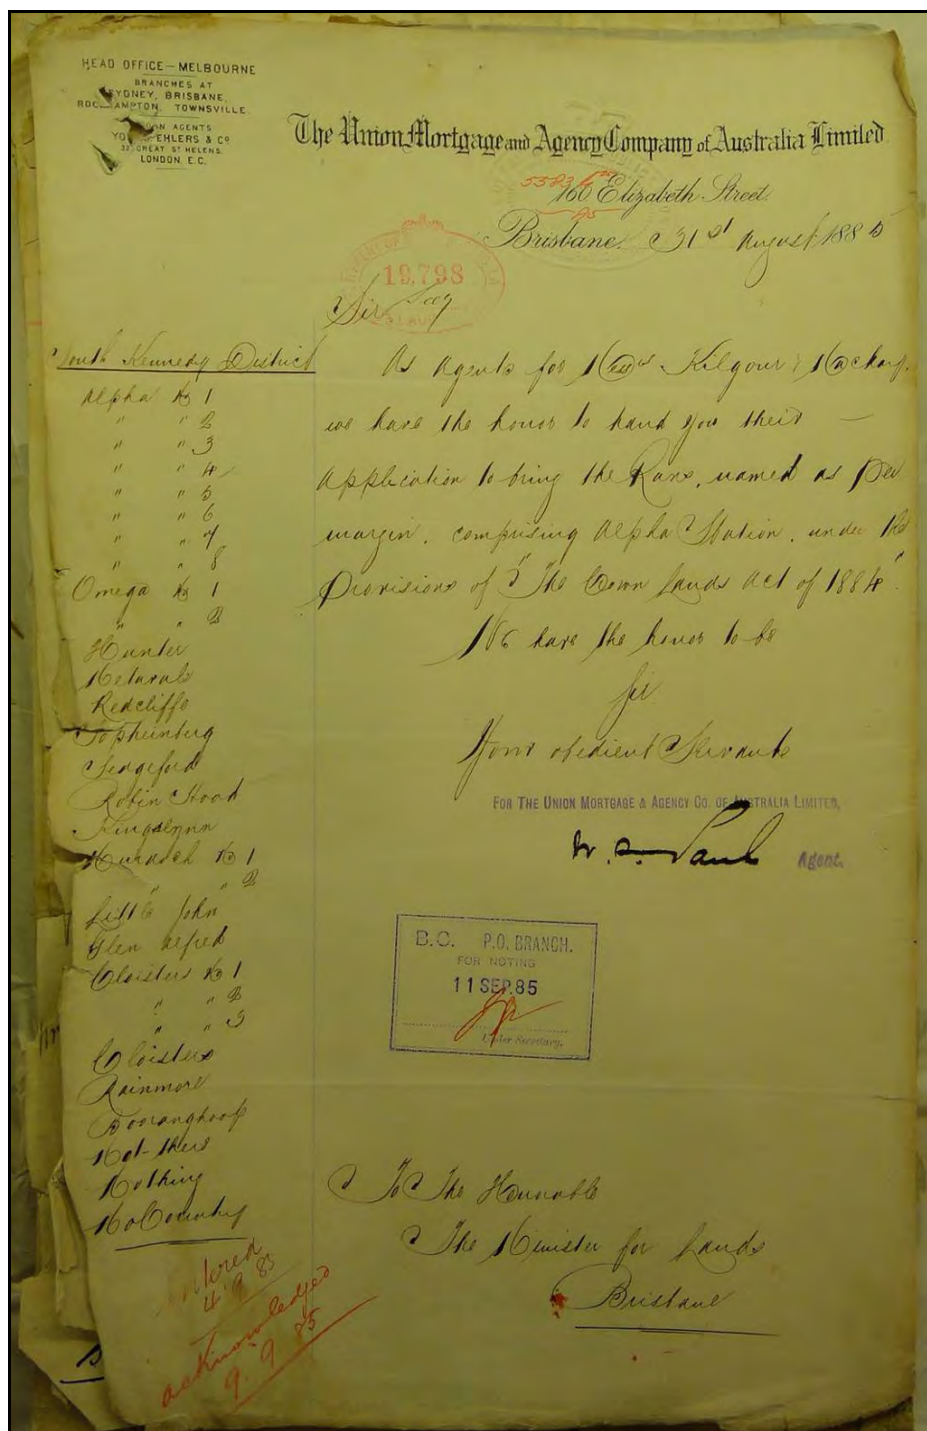 HEAD OFFICE – MELBOURNE
BRANCHES AT
SYDNEY, BRISBANE,
ROCKHAMPTON, TOWNSVILLE
AGENTS
EHLERS & Co
GREAT ST HELENS,
LONDON. E.C.
The Union Mortgage and Agency Company of Australia Limited
160 Elizabeth Street.
Brisbane. 31st August 1885
19,798
Sir
South Kennedy District
Alpha No 1
" " 2
" " 3
" " 4
" " 5
" " 6
" " 7
" 8
Omega No 1
" " 2
Hunter
Redcliffe
Sedgeford
Robin Hood
Kingslynn
No 1
" " 2
Little John
Glen Alfred
Cloisters No 1
" " 2
" " 3
Cloisters
Rainmore
Not-there
Nothing
No Country
As Agents for Messrs Kilgour & Machay.
we have the honor to hand you their —
application to bring the Runs, named as per
margin, comprising Alpha Station, under the
Provisions of "The Crown Lands Act of 1884".
We have the honor to be
Sir
Your obedient Servants
FOR THE UNION MORTGAGE & AGENCY CO. OF AUSTRALIA LIMITED,
Agent.
B.O. P.O. BRANCH.
FOR NOTING
11 SEP. 85
Under Secretary.
To The Honorable
The Minister for Lands
Brisbane
acknowledged
9.9.85